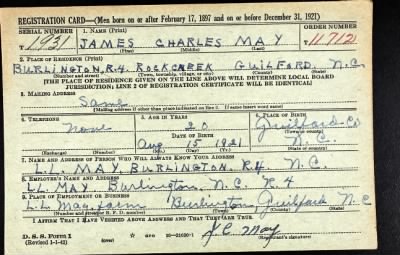 REGISTRATION CARD—(Men born on or after February 17, 1897 and on or before December 31, 1921)
SERIAL NUMBER
1. NAME (Print)
ORDER NUMBER
T 1931
JAMES CHARLES MAY
11712
(First) (Middle) (Last)
2. PLACE OF RESIDENCE (Print)
BURLINGTON R.4. ROCKCREEK GUILFORD N.C.
(Number and street) (Town, township, village, or city) (County) (State)
[THE PLACE OF RESIDENCE GIVEN ON THE LINE ABOVE WILL DETERMINE LOCAL BOARD
JURISDICTION; LINE 2 OF REGISTRATION CERTIFICATE WILL BE IDENTICAL]
3. MAILING ADDRESS
Same
[Mailing address if other than place indicated on line 2. If same insert word same]
4. TELEPHONE
5. AGE IN YEARS
6. PLACE OF BIRTH
None
20
Guilford Co
DATE OF BIRTH
(Town or county)
Aug 15 1921
N.C.
(Exchange) (Number) (Mo.) (Day) (Yr.) (State or country)
7. NAME AND ADDRESS OF PERSON WHO WILL ALWAYS KNOW YOUR ADDRESS
L.L. MAY BURLINGTON. R.4. N.C.
8. EMPLOYER'S NAME AND ADDRESS
L.L. MAY. Burlington, N.C. R.4
9. PLACE OF EMPLOYMENT OR BUSINESS
L.L. May farm Burlington Guilford N C
(Number and street or R. F. D. number) (Town) (County) (State)
I AFFIRM THAT I HAVE VERIFIED ABOVE ANSWERS AND THAT THEY ARE TRUE.
D. S. S. Form 1
(Revised 1-1-42) (over)
J.C. May
(Registrant's signature)